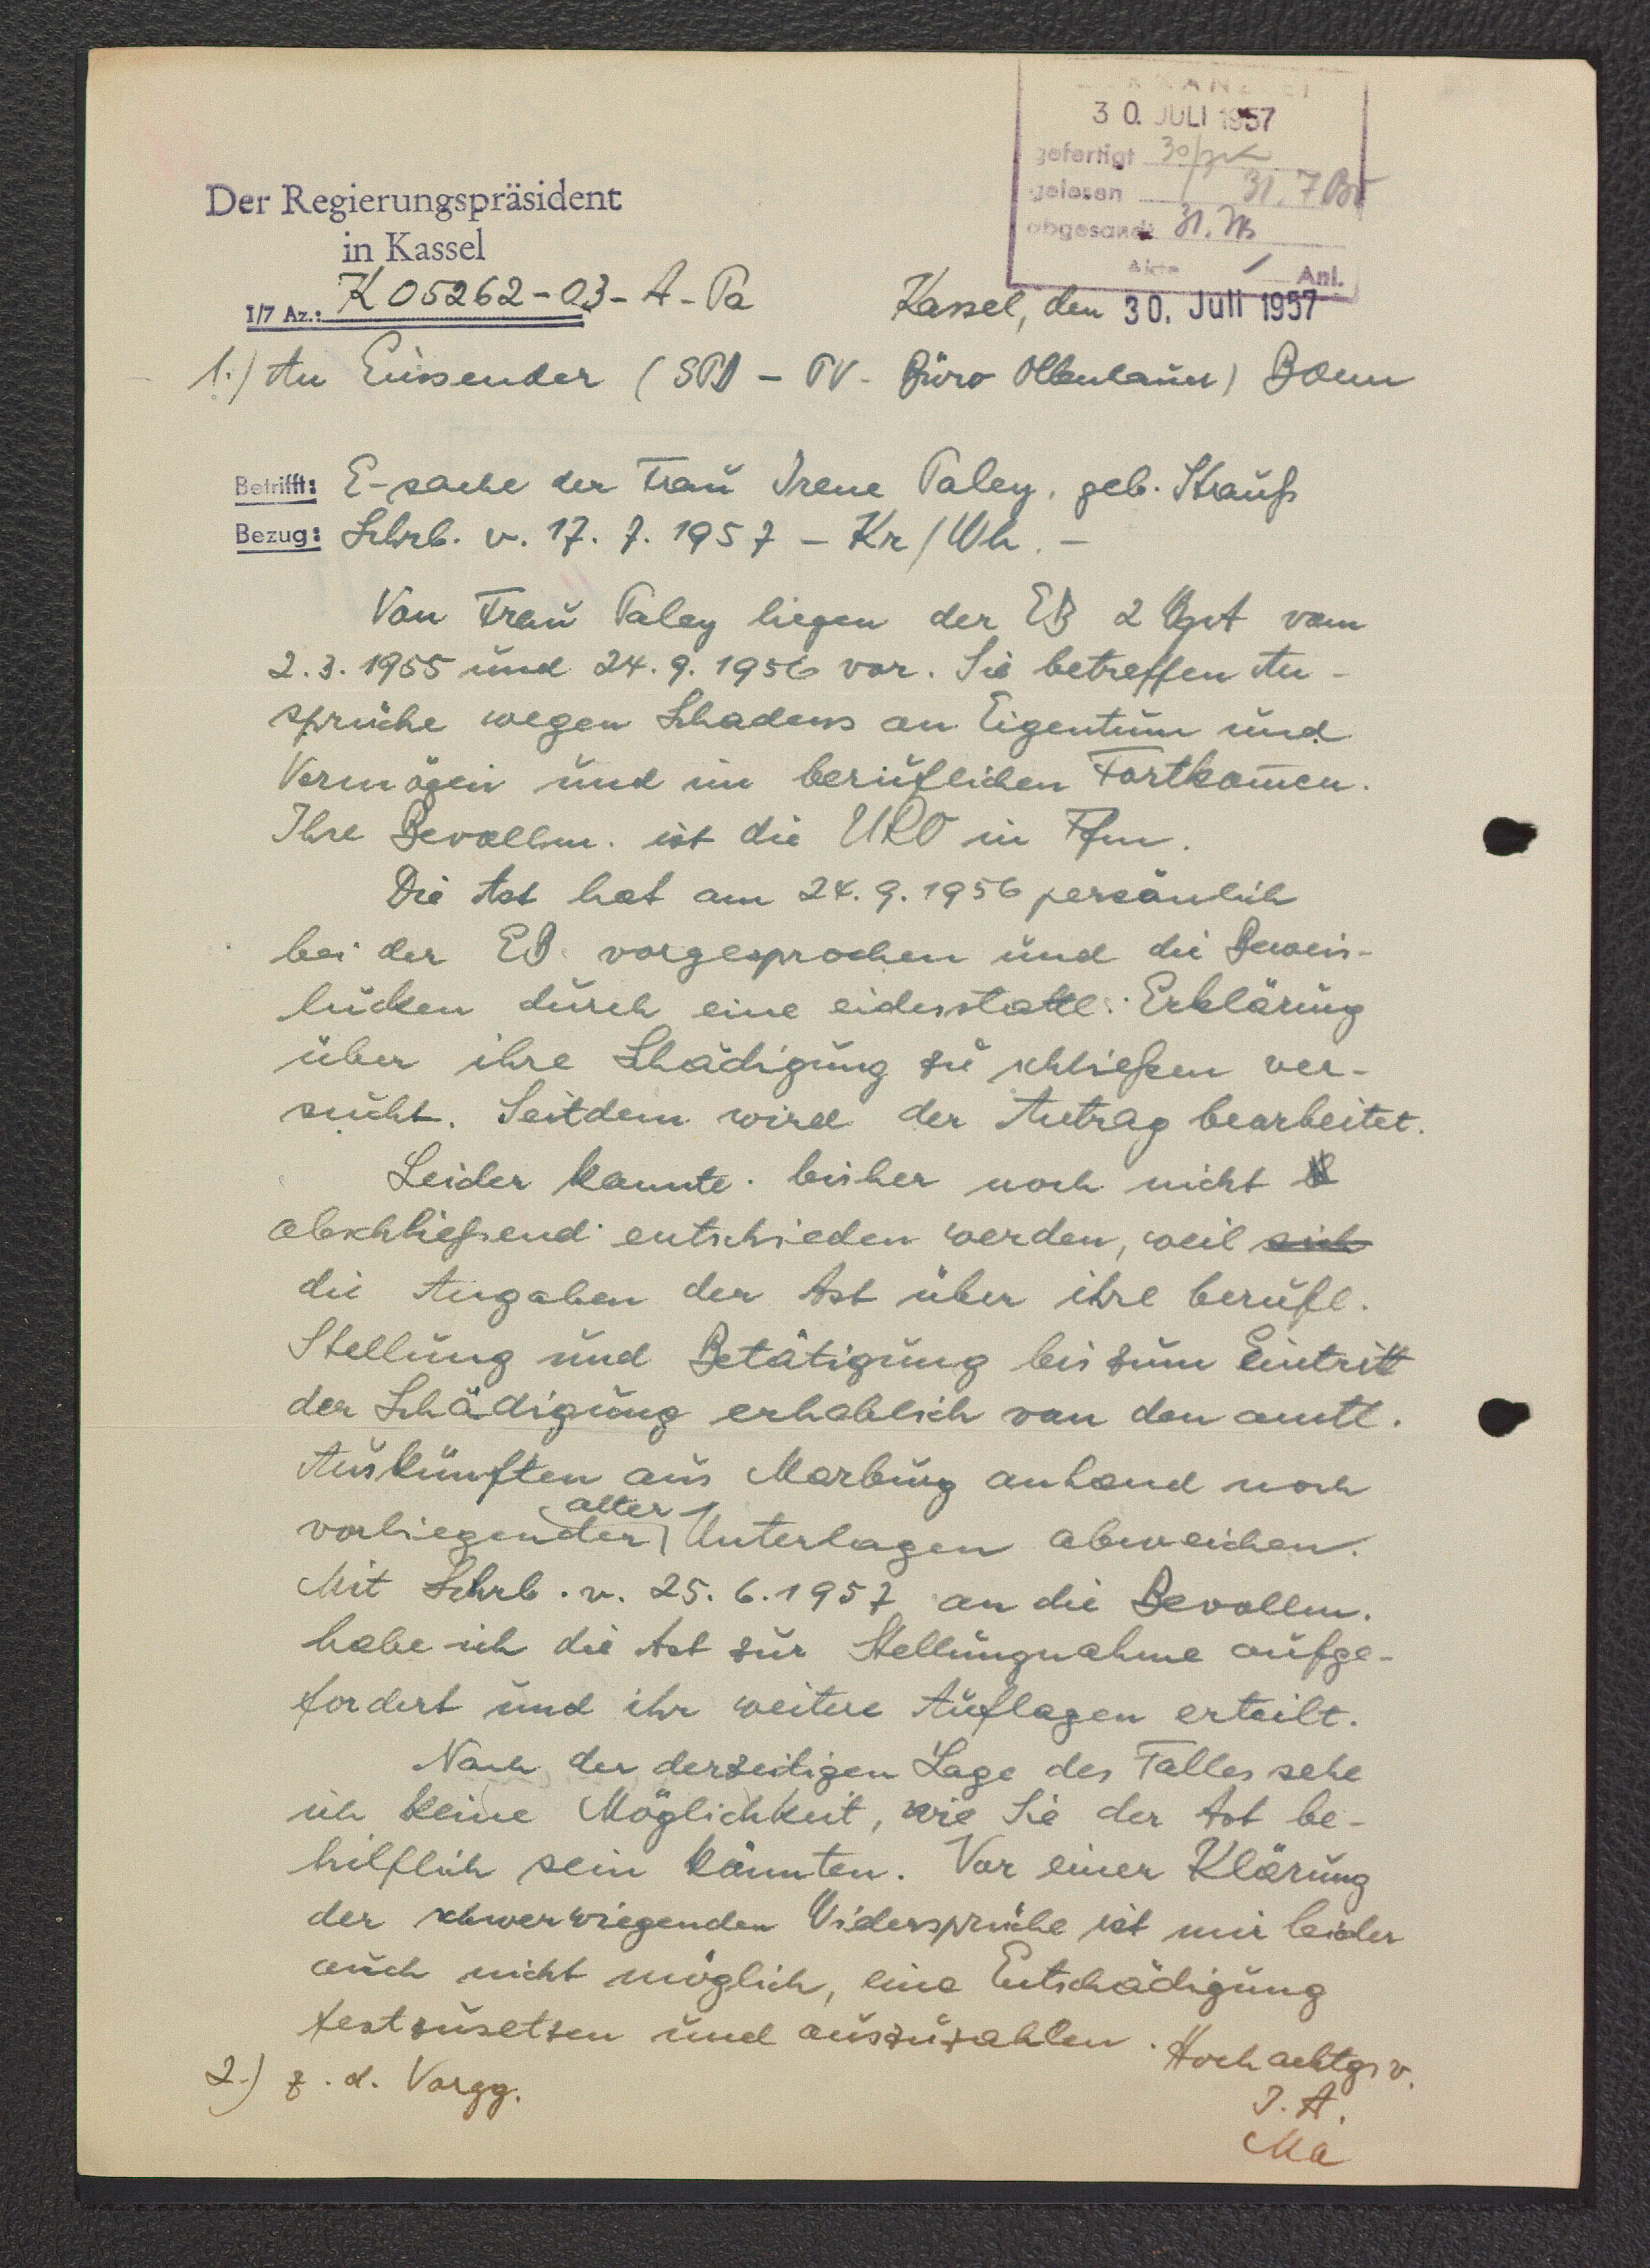 30. JULI 1957
gefertigt 30/
gelesen 31.7
abgesandt 31.
Akte 1 Anl.
Der Regierungspräsident
in Kassel
I/7 Az.: K 05262-03-A-Pa
Kassel, den 30. Juli 1957
1.) An Einsender (SPD - PV - Büro Ollenhauer) Bonn
Betrifft: E-sache der Frau Irene Paley, geb. Strauß
Bezug: Schrb. v. 17.7.1957 - Kr/Wh. -
Von Frau Paley liegen der EB 2 vom
2.3.1955 und 24.9.1956 vor. Sie betreffen An-
sprüche wegen Schadens an Eigentum und
Vermögen und im beruflichen Fortkom̅en.
Ihre Bevollm. ist die URO in Ffm.
Die Ast hat am 24.9.1956 persönlich
bei der EB. vorgesprochen und die Beweis-
lücken durch eine eidesstattl. Erklärung
über ihre Schädigung zu schließen ver-
sucht. Seitdem wird der Antrag bearbeitet.
Leider konnte bisher noch nicht
abschließend entschieden werden, weil sich
die Angaben der Ast über ihre berufl.
Stellung und Betätigung bis zum Eintritt
der Schädigung erheblich von den amtl.
Auskünften aus Marburg anhand noch
alter
vorliegender Unterlagen abweichen.
Mit Schrb. v. 25.6.1957 an die Bevollm.
habe ich die Ast zur Stellungnahme aufge-
fordert und ihr weitere Auflagen erteilt.
Nach der derzeitigen Lage des Falles sehe
ich keine Möglichkeit, wie Sie der Ast be-
hilflich sein könnten. Vor einer Klärung
der schwerwiegenden Widersprüche ist mir leider
auch nicht möglich, eine Entschädigung
festzusetzen und auszuzahlen.
Hochachtgsv.
2.) z. d. Vorgg.
I. A.
Ma